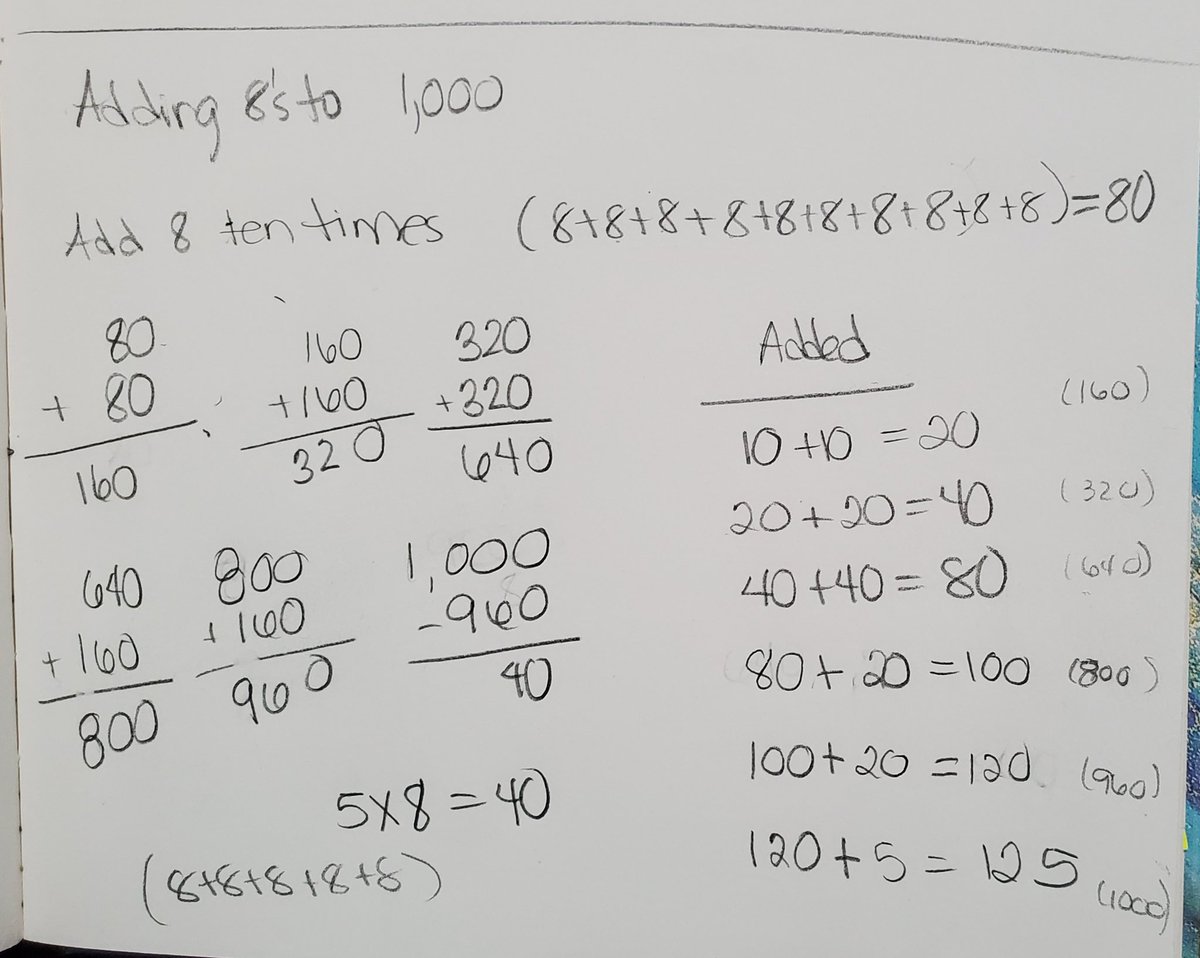 Adding 8's to 1,000
Add 8 ten times (8+8+8+8+8+8+8+8+8+8)=80
80
+ 80
160
160
+160
320
320
+320
640
640
+ 160
800
800
+ 160
960
1,000
-960
40
5x8=40
(8+8+8+8+8)
Added
10+10 =20 (160)
20+20=40 (320)
40+40= 80 (640)
80+20=100 (800)
100+20 =120 (960)
120+5= 125 (1000)